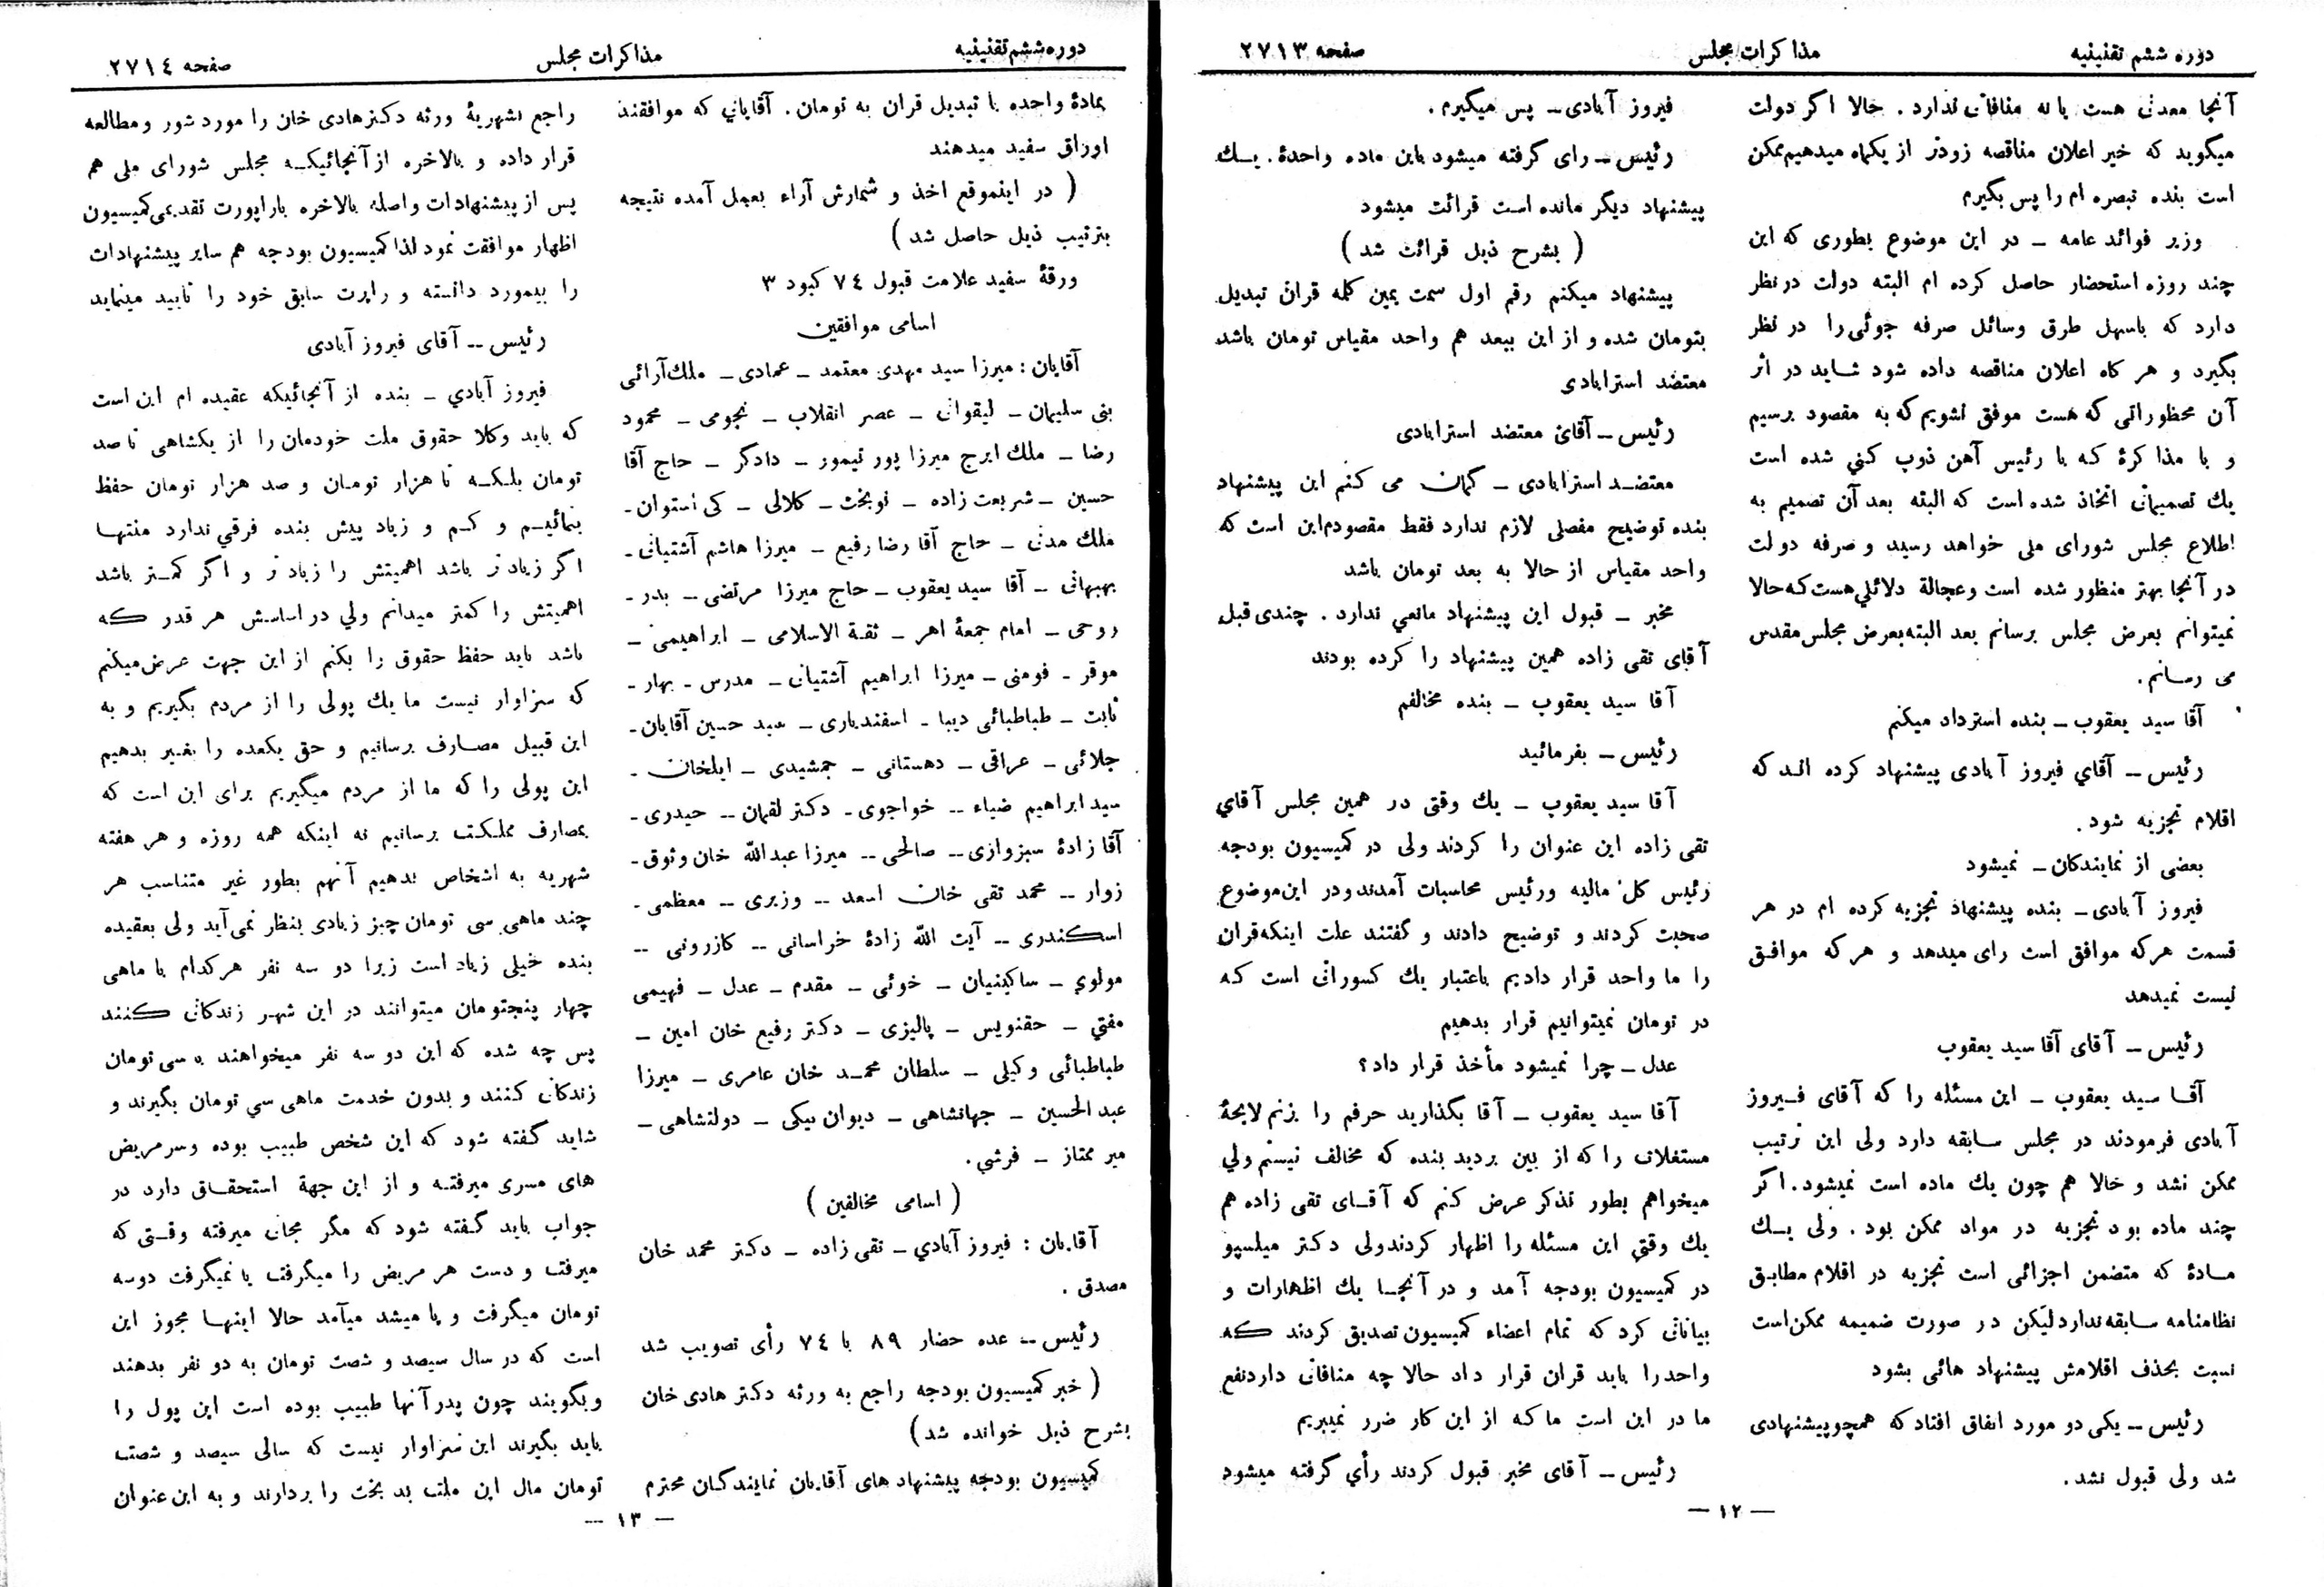 دوره ششم تقنینیه
مذاکرات مجلس
صفحه ۲۷۱۳
آنجا معدنی هست یا نه منافاتی ندارد . حالا اگر دولت
میگوید که خیر اعلان مناقصه زودتر از یکماه میدهیم ممکن
است بنده تبصره ام را پس بگیرم
وزیر فوائد عامه ـ در این موضوع بطوری که این
چند روزه استحضار حاصل کرده ام البته دولت در نظر
دارد که باسهل طرق وسائل صرفه جوئی را در نظر
بگیرد و هر گاه اعلان مناقصه داده شود شاید در اثر
آن محظوراتی که هست موفق نشویم که به مقصود برسیم
و با مذاکرهٔ که با رئیس آهن ذوب کنی شده است
یك تصمیماتی اتخاذ شده است که البته بعد آن تصمیم به
اطلاع مجلس شورای ملی خواهد رسید و صرفه دولت
در آنجا بهتر منظور شده است و عجالة دلائلی هست که حالا
نمیتوانم بعرض مجلس برسانم بعد البته بعرض مجلس مقدس
می رسانم .
آقا سید یعقوب ـ بنده استرداد میکنم
رئیس ـ آقای فیروز آبادی پیشنهاد کرده اند که
اقلام تجزیه شود .
بعضی از نمایندگان ـ نمیشود
فیروز آبادی ـ بنده پیشنهاد تجزیه کرده ام در هر
قسمت هرکه موافق است رای میدهد و هر که موافق
نیست نمیدهد
رئیس ـ آقای آقا سید یعقوب
آقا سید یعقوب ـ این مسئله را که آقای فیروز
آبادی فرمودند در مجلس سابقه دارد ولی این ترتیب
ممکن نشد و حالا هم چون یك ماده است نمیشود . اگر
چند ماده بود تجزیه در مواد ممکن بود . ولی یك
مادهٔ که متضمن اجزائی است تجزیه در اقلام مطابق
نظامنامه سابقه ندارد لیکن در صورت ضمیمه ممکن است
نسبت بحذف اقلامش پیشنهاد هائی بشود
رئیس ـ یکی دو مورد اتفاق افتاد که همچو پیشنهادی
شد ولی قبول نشد .
فیروز آبادی ـ پس میگیرم .
رئیس ـ رای گرفته میشود باین ماده واحدهٔ . یك
پیشنهاد دیگر مانده است قرائت میشود
( بشرح ذیل قرائت شد )
پیشنهاد میکنم رقم اول سمت یمین کلمه قران تبدیل
بتومان شده و از این ببعد هم واحد مقیاس تومان باشد
معتضد استرابادی
رئیس ـ آقای معتضد استرابادی
معتضد استرابادی ـ گمان می کنم این پیشنهاد
بنده توضیح مفصلی لازم ندارد فقط مقصودم این است که
واحد مقیاس از حالا به بعد تومان باشد
مخبر ـ قبول این پیشنهاد مانعی ندارد . چندی قبل
آقای تقی زاده همین پیشنهاد را کرده بودند
آقا سید یعقوب ـ بنده مخالفم
رئیس ـ بفرمائید
آقا سید یعقوب ـ یك وقتی در همین مجلس آقای
تقی زاده این عنوان را کردند ولی در کمیسیون بودجه
رئیس کل مالیه و رئیس محاسبات آمدند و در این موضوع
صحبت کردند و توضیح دادند و گفتند علت اینکه قران
را ما واحد قرار دادیم باعتبار یك کسوراتی است که
در تومان نمیتوانیم قرار بدهیم
عدل ـ چرا نمیشود مأخذ قرار داد؟
آقا سید یعقوب ـ آقا بگذارید حرفم را بزنم لایحهٔ
مستغلات را که از بین بردید بنده که مخالف نیستم ولی
میخواهم بطور تذکر عرض کنم که آقای تقی زاده هم
یك وقتی این مسئله را اظهار کردند ولی دکتر میلسپو
در کمیسیون بودجه آمد و در آنجا یك اظهارات و
بیاناتی کرد که تمام اعضاء کمیسیون تصدیق کردند که
واحد را باید قران قرار داد حالا چه منافاتی دارد نفع
ما در این است ما که از این کار ضرر نمیبریم
رئیس ـ آقای مخبر قبول کردند رأی گرفته میشود
— ۱۲ —
دوره ششم تقنینیه
مذاکرات مجلس
صفحه ۲۷۱٤
بمادهٔ واحده با تبدیل قران به تومان . آقایانی که موافقند
اوراق سفید میدهند
( در اینموقع اخذ و شمارش آراء بعمل آمده نتیجه
بترتیب ذیل حاصل شد )
ورقهٔ سفید علامت قبول ۷٤ کبود ۳
اسامی موافقین
آقایان : میرزا سید مهدی معتمد ـ عمادی ـ ملك آرائی
بنی سلیمان ـ لیقوانی ـ عصر انقلاب ـ نجومی ـ محمود
رضا ـ ملك ایرج میرزا پور تیمور ـ دادگر ـ حاج آقا
حسین ـ شریعت زاده ـ نوبخت ـ کلالی ـ کی استوان ـ
ملك مدنی ـ حاج آقا رضا رفیع ـ میرزا هاشم آشتیانی ـ
بهبهانی ـ آقا سید یعقوب ـ حاج میرزا مرتضی ـ بدر ـ
روحی ـ امام جمعهٔ اهر ـ ثقة الاسلامی ـ ابراهیمی ـ
موقر ـ فومنی ـ میرزا ابراهیم آشتیانی ـ مدرس ـ بهار ـ
ثابت ـ طباطبائی دیبا ـ اسفندیاری ـ سید حسین آقایان ـ
جلائی ـ عراقی ـ دهستانی ـ جمشیدی ـ ایلخان ـ
سید ابراهیم ضیاء ـ خواجوی ـ دکتر لقمان ـ حیدری ـ
آقا زادهٔ سبزواری ـ صالحی ـ میرزا عبدالله خان وثوق ـ
زوار ـ محمد تقی خان اسعد ـ وزیری ـ معظمی ـ
اسکندری ـ آیت الله زادهٔ خراسانی ـ کازرونی ـ
مولوی ـ ساکینیان ـ خوئی ـ مقدم ـ عدل ـ فهیمی
مفتی ـ حقنویس ـ پالیزی ـ دکتر رفیع خان امین ـ
طباطبائی وکیلی ـ سلطان محمد خان عامری ـ میرزا
عبد الحسین ـ جهانشاهی ـ دیوان بیکی ـ دولتشاهی ـ
میر ممتاز ـ فرشی .
( اسامی مخالفین )
آقایان : فیروز آبادی ـ تقی زاده ـ دکتر محمد خان
مصدق .
رئیس ـ عده حضار ۸۹ با ۷٤ رأی تصویب شد
( خبر کمیسیون بودجه راجع به ورثه دکتر هادی خان
بشرح ذیل خوانده شد )
کمیسیون بودجه پیشنهاد های آقایان نمایندگان محترم
راجع بشهریهٔ ورثه دکتر هادی خان را مورد شور و مطالعه
قرار داده و بالاخره از آنجائیکه مجلس شورای ملی هم
پس از پیشنهادات واصله بالاخره با راپورت تقدیمی کمیسیون
اظهار موافقت نمود لذا کمیسیون بودجه هم سایر پیشنهادات
را بیمورد دانسته و راپرت سابق خود را تایید مینماید
رئیس ـ آقای فیروز آبادی
فیروز آبادی ـ بنده از آنجائیکه عقیده ام این است
که باید وکلا حقوق ملت خودمان را از یکشاهی تا صد
تومان بلکه تا هزار تومان و صد هزار تومان حفظ
بنمائیم و کم و زیاد پیش بنده فرقی ندارد منتها
اگر زیادتر باشد اهمیتش را زیاد تر و اگر کمتر باشد
اهمیتش را کمتر میدانم ولی در اساسش هر قدر که
باشد باید حفظ حقوق را بکنم از این جهت عرض میکنم
که سزاوار نیست ما یك پولی را از مردم بگیریم و به
این قبیل مصارف برسانیم و حق یکعده را تغییر بدهیم
این پولی را که ما از مردم میگیریم برای این است که
بمصارف مملکت برسانیم نه اینکه همه روزه و هر هفته
شهریه به اشخاص بدهیم آنهم بطور غیر متناسب هر
چند ماهی سی تومان چیز زیادی بنظر نمی آید ولی بعقیده
بنده خیلی زیاد است زیرا دو سه نفر هرکدام با ماهی
چهار پنجتومان میتوانند در این شهر زندگانی کنند
پس چه شده که این دو سه نفر میخواهند با سی تومان
زندگانی کنند و بدون خدمت ماهی سی تومان بگیرند و
شاید گفته شود که این شخص طبیب بوده و سر مریض
های مسری میرفته و از این جهة استحقاق دارد در
جواب باید گفته شود که مگر مجانی میرفته وقتی که
میرفت و دست هر مریض را میگرفت یا نمیگرفت دوسه
تومان میگرفت و پا میشد میآمد حالا اینها مجوز این
است که در سال سیصد و شصت تومان به دو نفر بدهند
و بگویند چون پدر آنها طبیب بوده است این پول را
باید بگیرند این سزاوار نیست که سالی سیصد و شصت
تومان مال این ملت بد بخت را بردارند و به این عنوان
— ۱۳ —